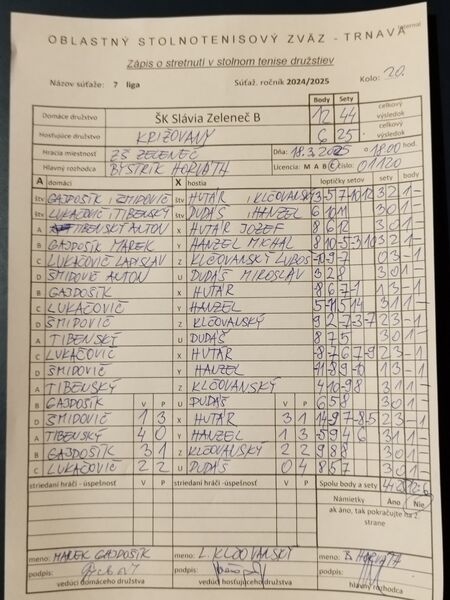 Internal
OBLASTNÝ STOLNOTENISOVÝ ZVÄZ - TRNAVA
Zápis o stretnutí v stolnom tenise družstiev
Názov súťaže: 7 liga Súťaž. ročník 2024/2025 Kolo: 20.
Body Sety
Domáce družstvo ŠK Slávia Zeleneč B 12 44 celkový výsledok
Hosťujúce družstvo KRIŽOVANY 6 25 celkový výsledok
Hracia miestnosť ZŠ ZELENEČ Dňa: 18.3.2025 o 18.00 hod.
Hlavný rozhodca BYSTRÍK HORVÁTH Licencia: M A B C číslo: 01120
A domáci X hostia loptičky setov sety body
štv GAJDOŠÍK, ŠMIDOVIČ štv HUTÁR, KLČOVANSKÝ 3 2 1 -
štv LUKAČOVIČ, TIBENSKÝ štv DUDÁŠ, HANZEL 6 10 11 3 0 1 -
A TIBENSKÝ ANTON X HUTÁR JOZEF 8 6 12 3 0 1 -
B GAJDOŠÍK MAREK Y HANZEL MICHAL 8 10 -5 -3 10 3 2 1 -
C LUKAČOVIČ LADISLAV Z KLČOVANSKÝ ĽUBOŠ -10 -9 -7 0 3 - 1
D ŠMIDOVIČ ANTON U DUDÁŠ MIROSLAV 3 2 8 3 0 1 -
B GAJDOŠÍK X HUTÁR 1 3 - 1
C LUKAČOVIČ Y HANZEL 3 1 1 -
D ŠMIDOVIČ Z KLČOVANSKÝ 9 2 -7 -3 -7 2 3 - 1
A TIBENSKÝ U DUDÁŠ 8 7 5 3 0 1 -
C LUKAČOVIČ X HUTÁR -8 7 6 -7 -9 2 3 - 1
D ŠMIDOVIČ Y HANZEL 1 3 - 1
A TIBENSKÝ Z KLČOVANSKÝ 4 10 -9 8 3 1 1 -
B GAJDOŠÍK V P U DUDÁŠ V P 6 5 8 3 0 1 -
D ŠMIDOVIČ 1 3 X HUTÁR 3 1 2 3 - 1
A TIBENSKÝ 4 0 Y HANZEL 1 3 -5 9 4 6 3 1 1 -
B GAJDOŠÍK 3 1 Z KLČOVANSKÝ 2 2 9 8 8 3 0 1 -
C LUKAČOVIČ 2 2 U DUDÁŠ 0 4 8 5 7 3 0 1 -
striedaní hráči - úspešnosť V P striedaní hráči - úspešnosť V P Spolu body a sety
Námietky Áno Nie
ak áno, tak pokračujte na 2 strane
meno: MAREK GAJDOŠÍK meno: L. KLČOVANSKÝ meno: B. HORVÁTH
podpis: podpis: podpis:
vedúci domáceho družstva vedúci hosťujúceho družstva hlavný rozhodca